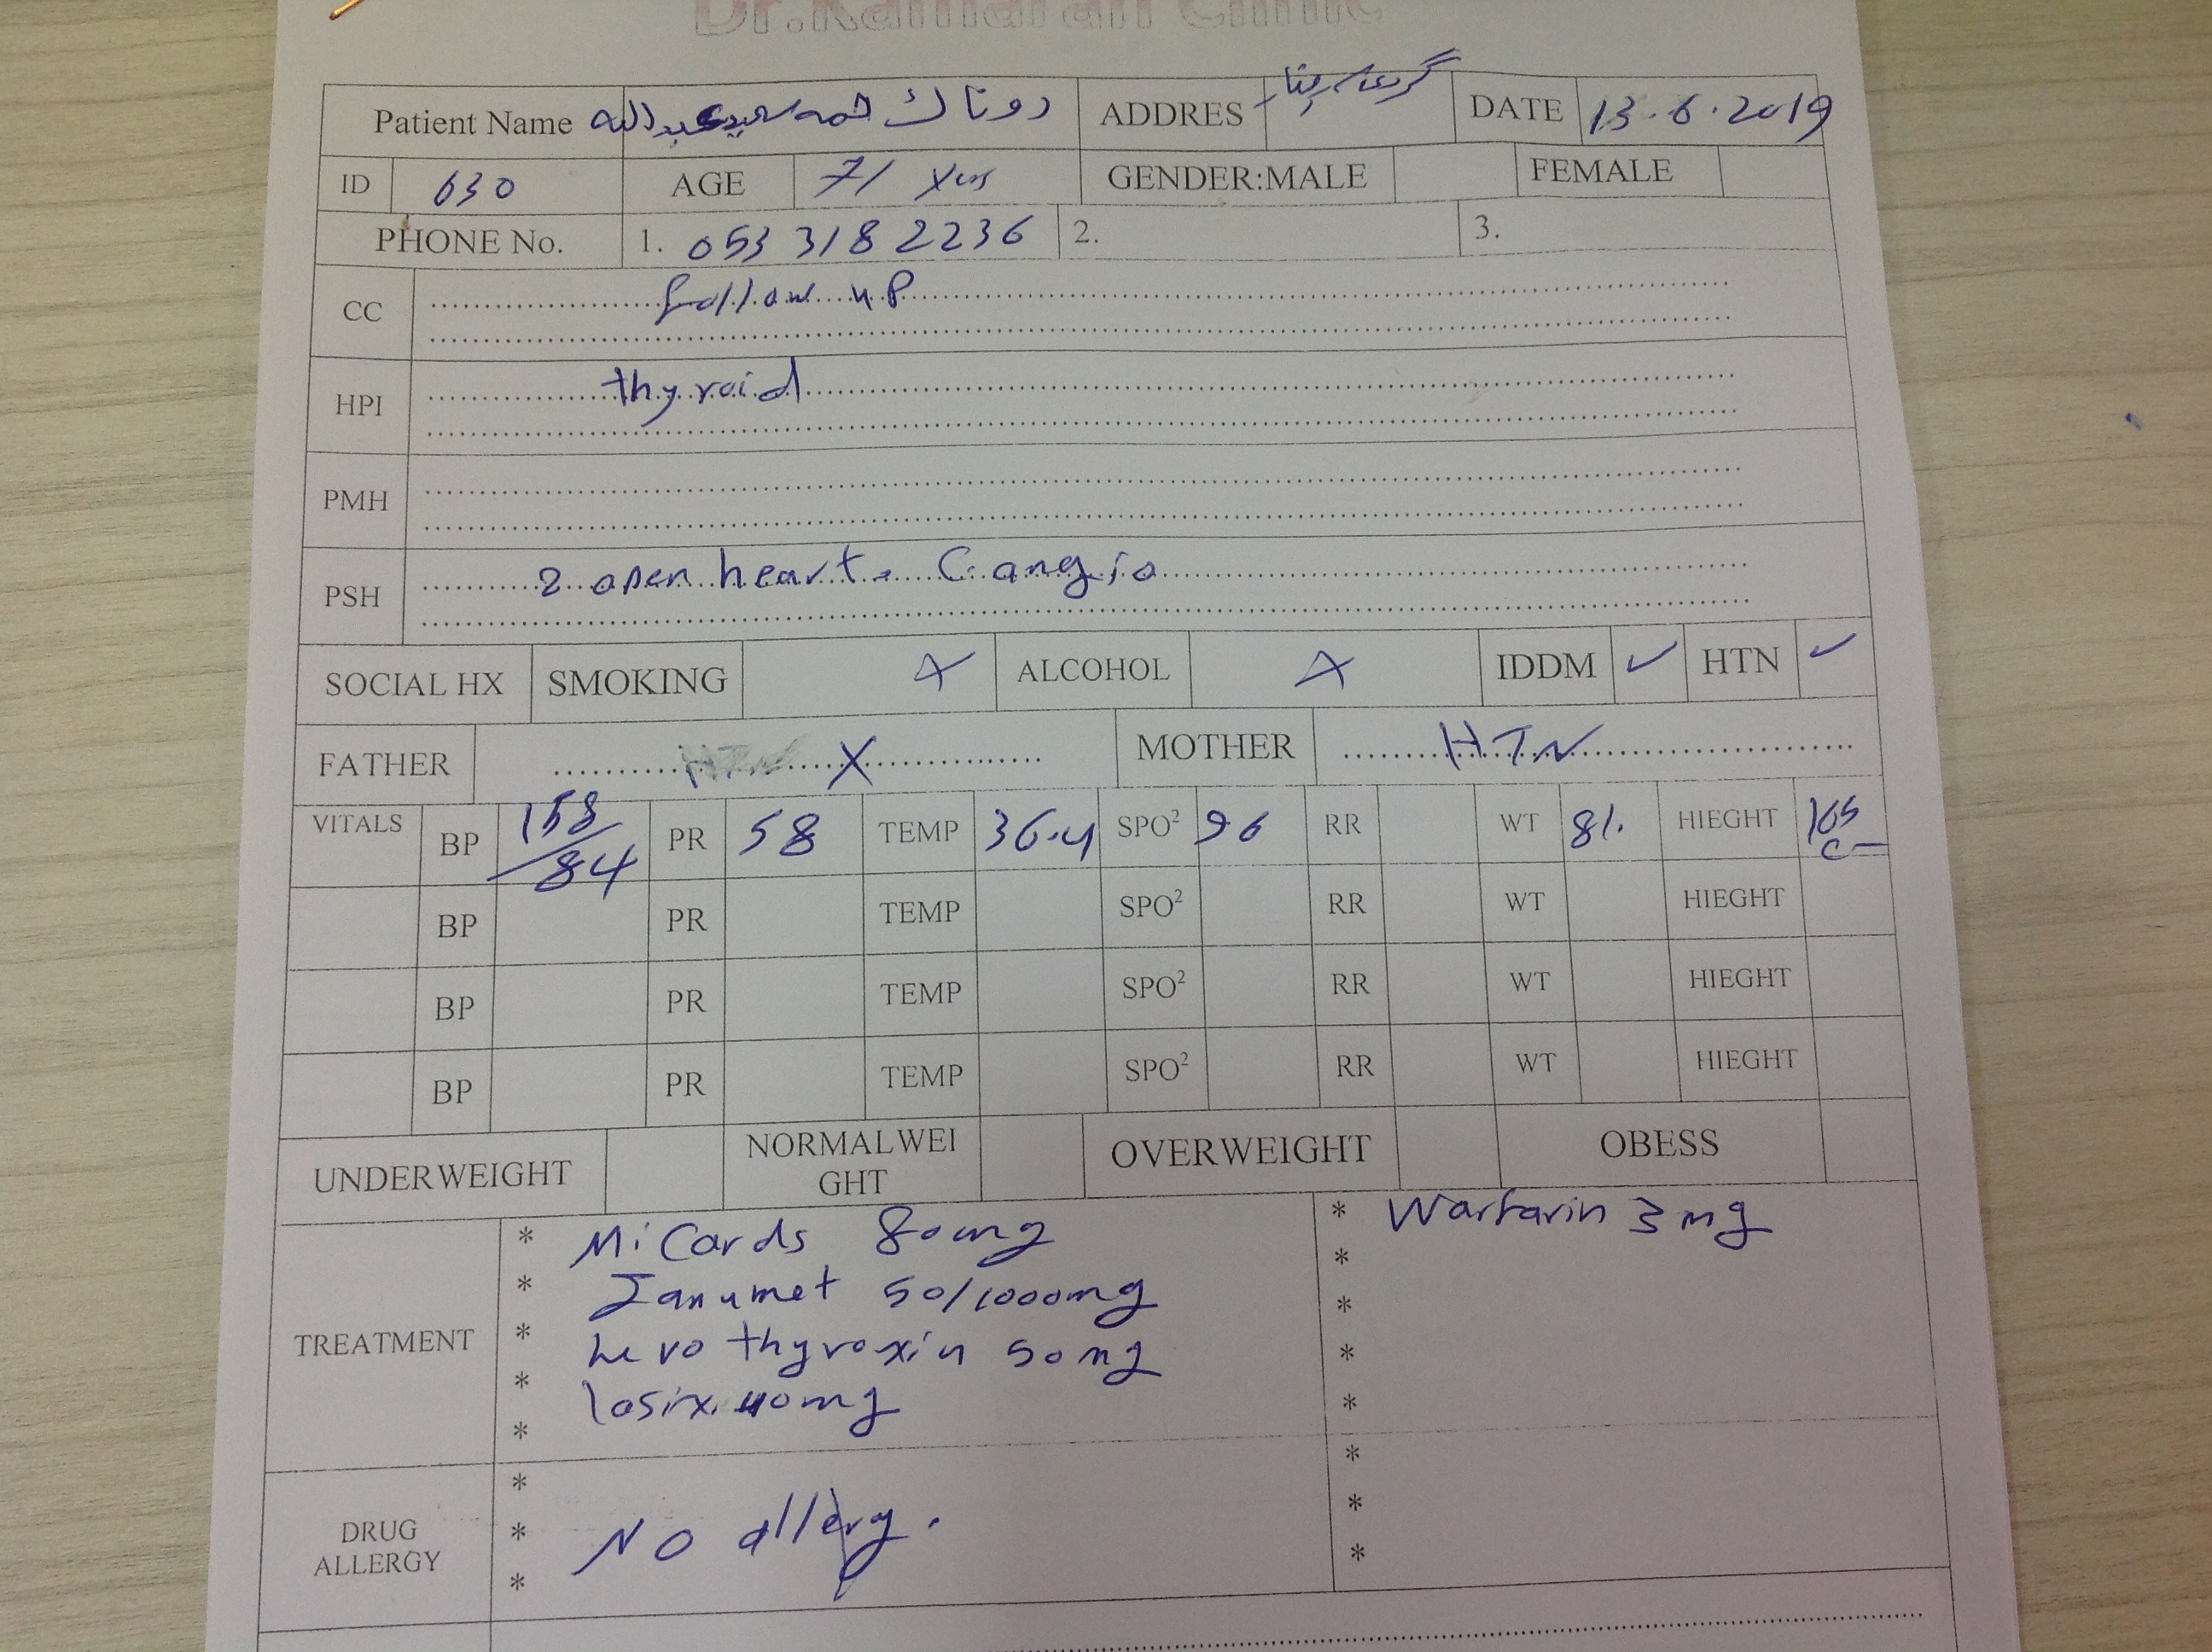 Dr.Kamaran Clinic
Patient Name روناك حمه سعيد عبدالله ADDRES DATE 13.6.2019
ID 630 AGE 71 yrs GENDER:MALE FEMALE
PHONE No. 1. 053 318 2236 2. 3.
CC follow up
HPI thyroid
PMH
PSH 2 open heart. C. angio
SOCIAL HX SMOKING X ALCOHOL X IDDM ✓ HTN ✓
FATHER HTN X MOTHER HTN
VITALS BP 158/84 PR 58 TEMP 36.4 SPO² 96 RR WT 81. HIEGHT 165
BP PR TEMP SPO² RR WT HIEGHT
BP PR TEMP SPO² RR WT HIEGHT
BP PR TEMP SPO² RR WT HIEGHT
UNDERWEIGHT NORMALWEI
GHT OVERWEIGHT OBESS
TREATMENT
* Mi Cards 80mg
* Janumet 50/1000mg
* Levo thyroxin 50mg
* lasix 40mg
*
* Warfarin 3mg
*
*
*
*
DRUG
ALLERGY
* No allergy.
*
*
*
*
*